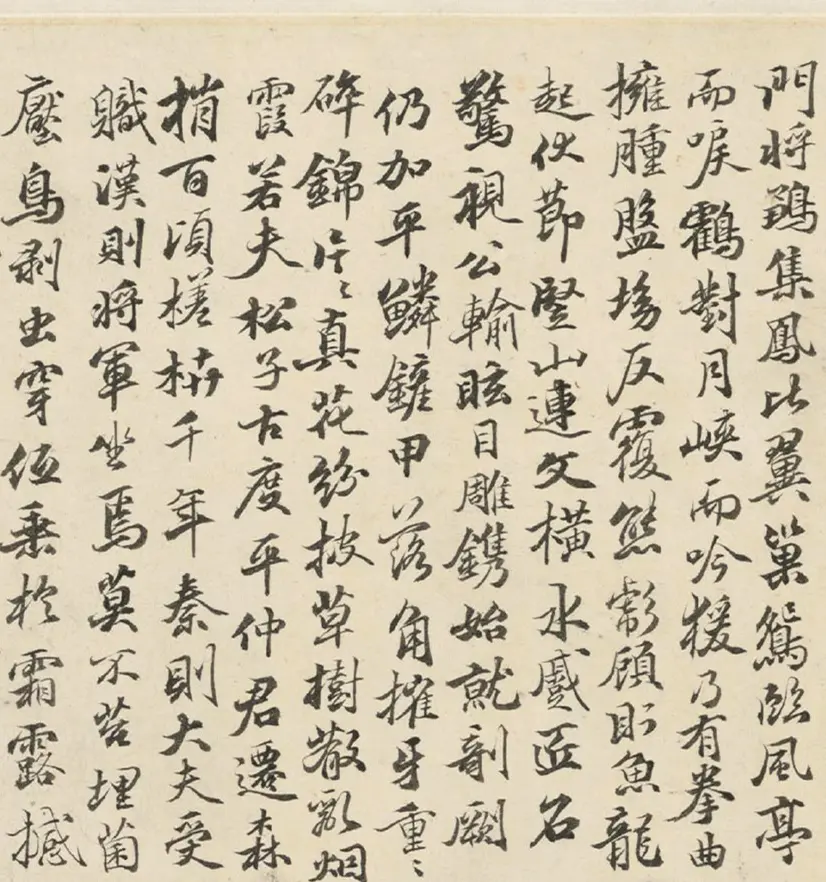 門将鶵集鳳比翼巢鴛臨風亭
而唳鶴對月峽而吟猨乃有拳曲
擁腫盤坳反覆熊彪顧盻魚龍
起伏節竪山連文横水蹙匠石
驚視公輸眩目雕鐫始就剞劂
仍加平鱗鏟甲落角摧牙重〻
碎錦片〻真花紛披草樹散亂烟
霞若夫松子古度平仲君遷森
梢百頃槎枿千年秦則大夫受
職漢則将軍坐焉莫不苔埋菌
壓鳥剥虫穿低垂於霜露撼